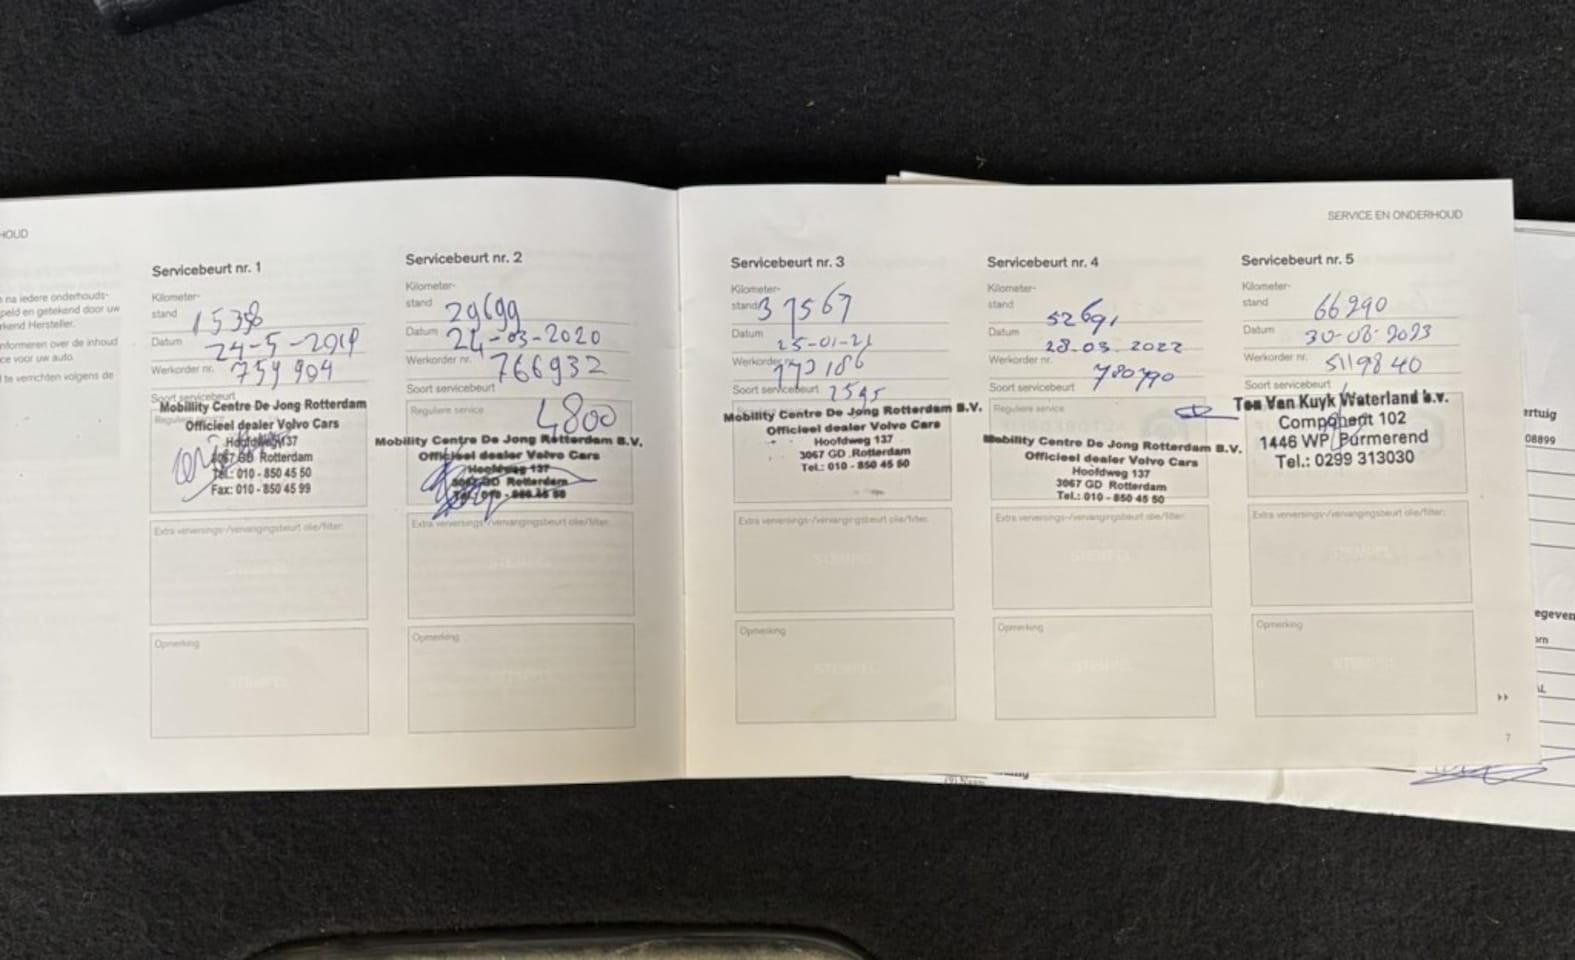 HOUD
SERVICE EN ONDERHOUD
na iedere onderhouds-
peld en getekend door uw
rkend Hersteller.
nformeren over de inhoud
ce voor uw auto.
te verrichten volgens de
Servicebeurt nr. 1
Kilometer-
stand
Datum 24-5-2019
Werkorder nr. 759904
Soort servicebeurt
Mobility Centre De Jong Rotterdam
Officieel dealer Volvo Cars
Hoofdweg 137
3067 GD Rotterdam
Tel.: 010 - 850 45 50
Fax: 010 - 850 45 99
Extra verversings-/vervangingsbeurt olie/filter:
STEMPEL
Opmerking
STEMPEL
Servicebeurt nr. 2
Kilometer-
stand 29699
Datum 24-03-2020
Werkorder nr. 766932
Soort servicebeurt
Reguliere service 4800
Mobility Centre De Jong Rotterdam B.V.
Officieel dealer Volvo Cars
Hoofdweg 137
3067 GD Rotterdam
Tel.: 010 - 850 45 50
Extra verversings-/vervangingsbeurt olie/filter:
STEMPEL
Opmerking
STEMPEL
Servicebeurt nr. 3
Kilometer-
stand 37567
Datum 25-01-21
Werkorder nr. 772186
Soort servicebeurt
Mobility Centre De Jong Rotterdam B.V.
Officieel dealer Volvo Cars
Hoofdweg 137
3067 GD Rotterdam
Tel.: 010 - 850 45 50
Extra verversings-/vervangingsbeurt olie/filter:
STEMPEL
Opmerking
STEMPEL
Servicebeurt nr. 4
Kilometer-
stand 52691
Datum 28.03.2022
Werkorder nr. 780790
Soort servicebeurt
Reguliere service
Mobility Centre De Jong Rotterdam B.V.
Officieel dealer Volvo Cars
Hoofdweg 137
3067 GD Rotterdam
Tel.: 010 - 850 45 50
Extra verversings-/vervangingsbeurt olie/filter:
STEMPEL
Opmerking
STEMPEL
Servicebeurt nr. 5
Kilometer-
stand 66290
Datum 30-08-2023
Werkorder nr. 5119840
Soort servicebeurt
Ton Van Kuyk Waterland b.v.
Component 102
1446 WP Purmerend
Tel.: 0299 313030
Extra verversings-/vervangingsbeurt olie/filter:
STEMPEL
Opmerking
STEMPEL
7
ertuig
08899
egeven